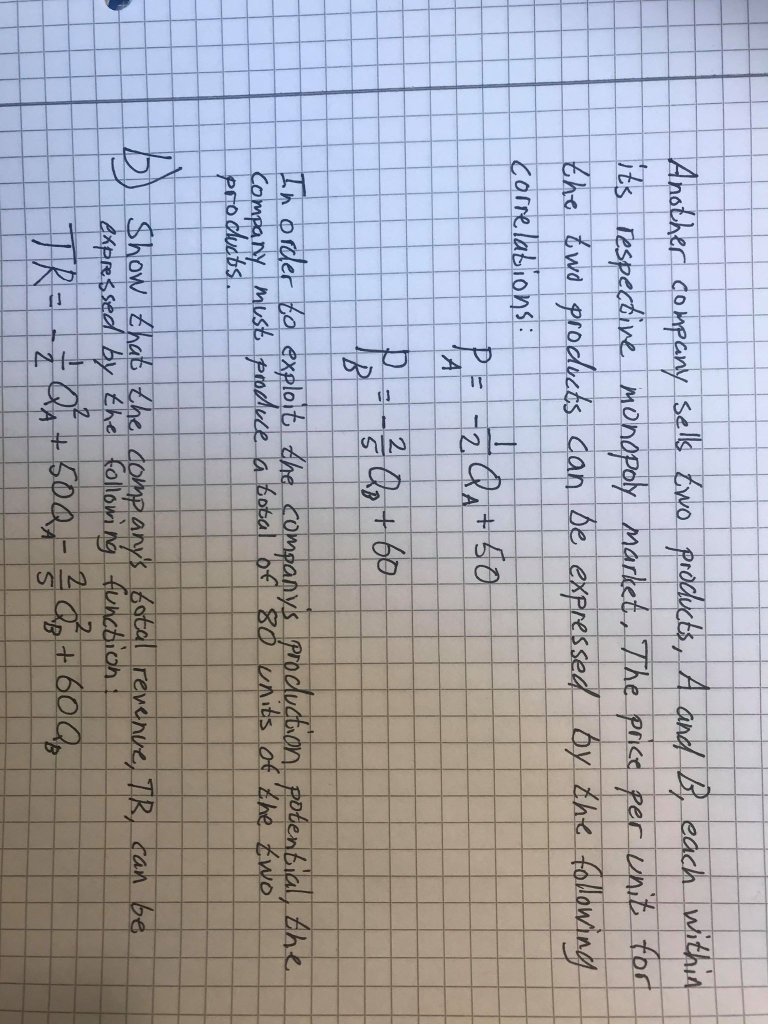 Another company sells two products, A and B, each within
its respective monopoly market. The price per unit for
the two products can be expressed by the following
correlations:
P_A = -1/2 Q_A + 50
P_B = -2/5 Q_B + 60
In order to exploit the company's production potential, the
company must produce a total of 80 units of the two
products.
b) Show that the company's total revenue, TR, can be
expressed by the following function:
TR = -1/2 Q_A² + 50Q_A - 2/5 Q_B² + 60Q_B